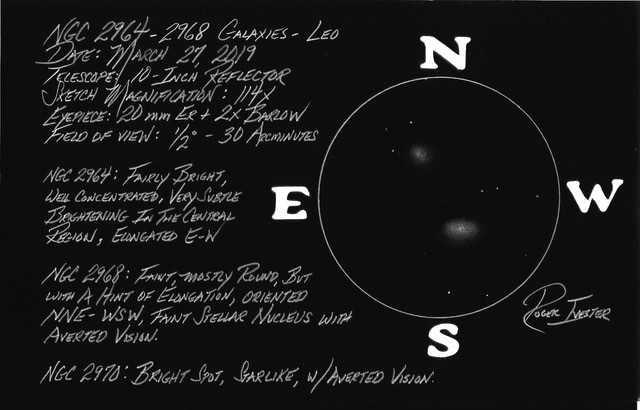 NGC 2964-2968 GALAXIES - LEO
DATE: MARCH 27, 2019
TELESCOPE: 10-INCH REFLECTOR
SKETCH MAGNIFICATION: 114X
EYEPIECE: 20 mm Er + 2X BARLOW
FIELD OF VIEW: 1/2° - 30 ARCMINUTES
NGC 2964: FAIRLY BRIGHT,
WELL CONCENTRATED, VERY SUBTLE
BRIGHTENING IN THE CENTRAL
REGION, ELONGATED E-W
NGC 2968: FAINT, MOSTLY ROUND, BUT
WITH A HINT OF ELONGATION, ORIENTED
NNE-WSW, FAINT STELLAR NUCLEUS WITH
AVERTED VISION.
NGC 2970: BRIGHT SPOT, STARLIKE, W/ AVERTED VISION.
N
E
W
S
ROGER IVESTER